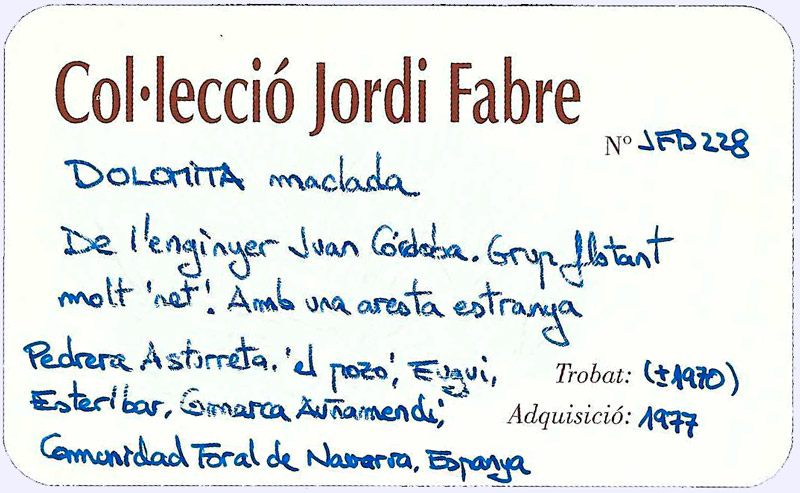 Col·lecció Jordi Fabre
Nº JFD228
DOLOMITA maclada
De l'enginyer Juan Córdoba. Grup flotant
molt 'net'. Amb una aresta estranya
Pedrera Asturreta. 'el pozo', Eugui,
Esteríbar, Comarca Auñamendi,
Comunidad Foral de Navarra, Espanya
Trobat: (±1970)
Adquisició: 1977